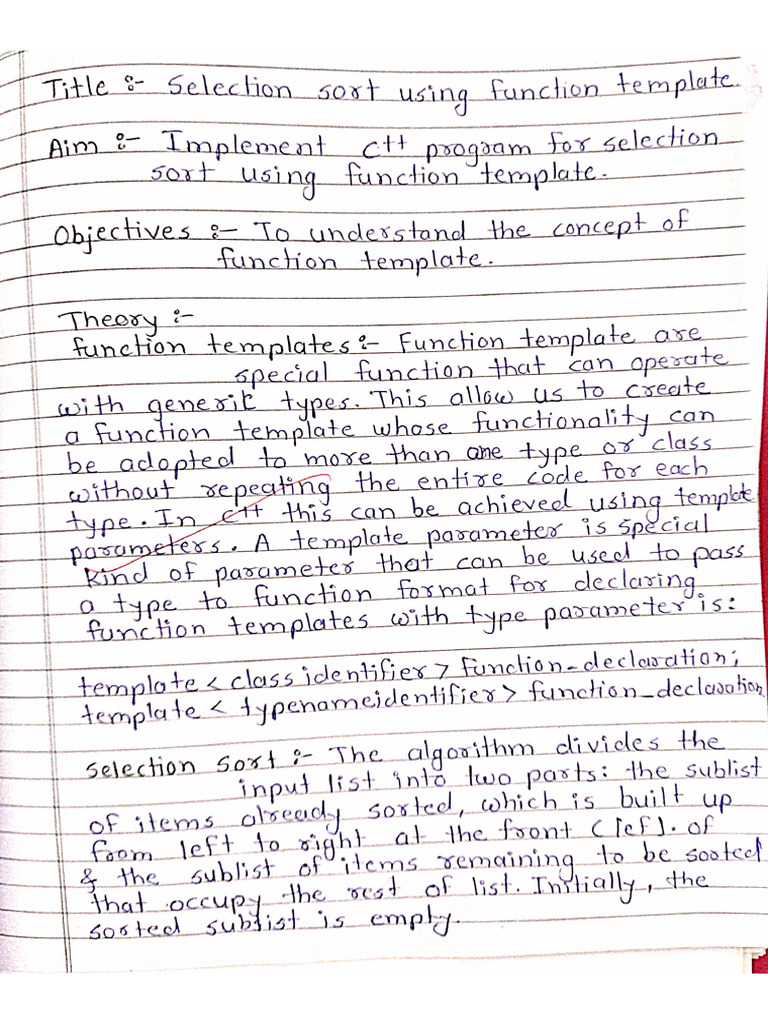 Title :- Selection sort using function template.
Aim :- Implement C++ program for selection
sort using function template.
Objectives :- To understand the concept of
function template.
Theory :-
function templates :- Function template are
special function that can operate
with generic types. This allow us to create
a function template whose functionality can
be adopted to more than one type or class
without repeating the entire code for each
type. In C++ this can be achieved using template
parameters. A template parameter is special
kind of parameter that can be used to pass
a type to function format for declaring
function templates with type parameter is:
template < class identifier > function_declaration;
template < typenameidentifier > function_declaration
Selection Sort :- The algorithm divides the
input list into two parts: the sublist
of items already sorted, which is built up
from left to right at the front (lef). of
& the sublist of items remaining to be sorted
that occupy the rest of list. Initially, the
sorted sublist is empty.